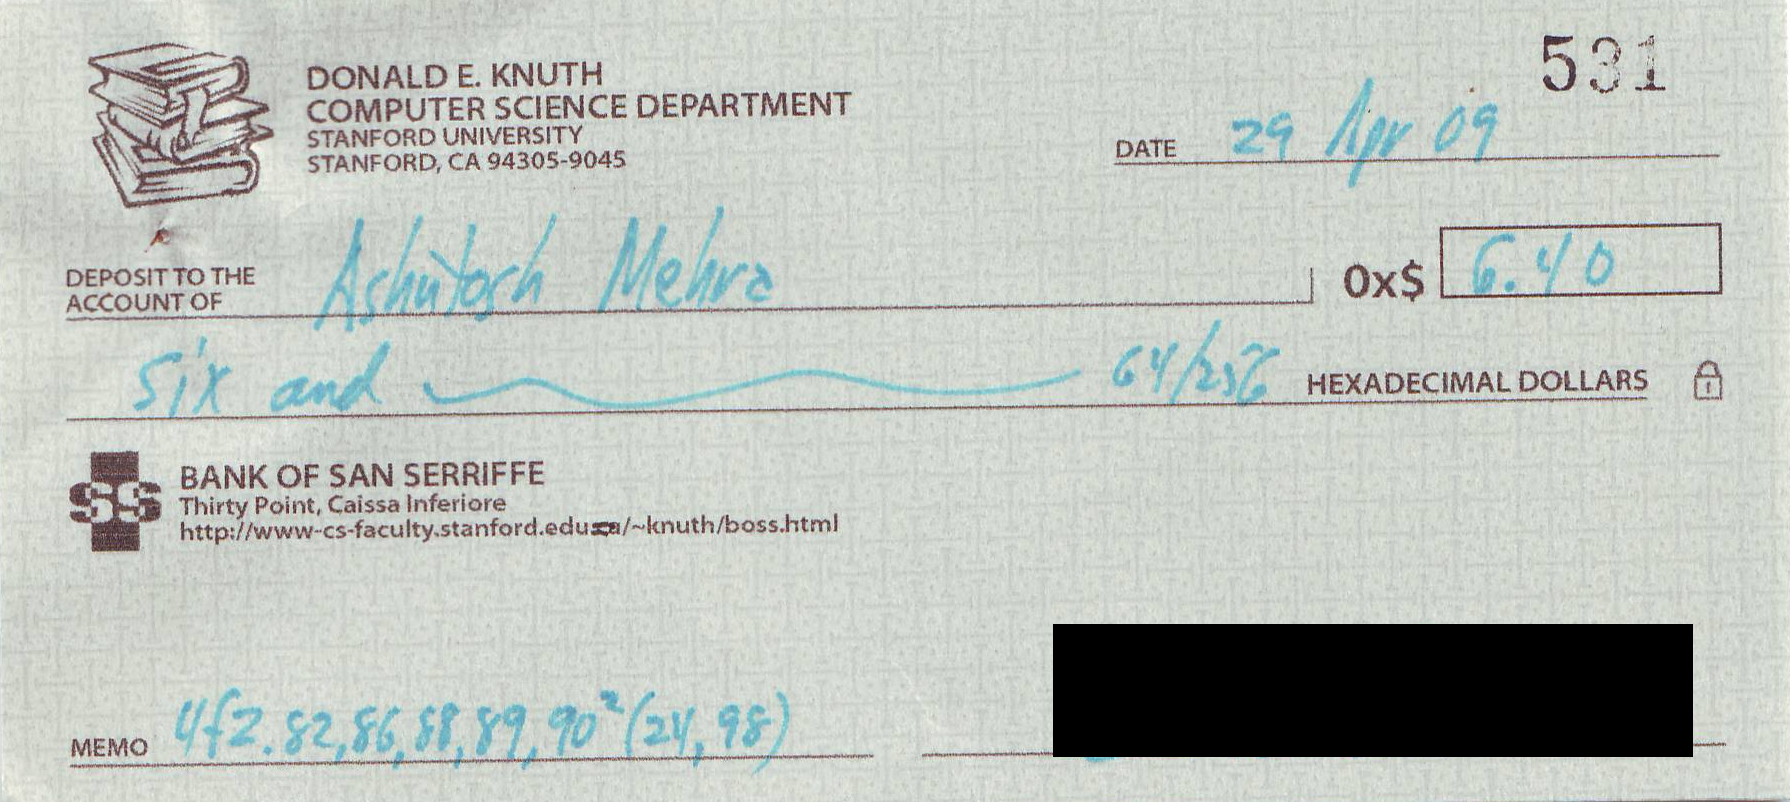 531
DONALD E. KNUTH
COMPUTER SCIENCE DEPARTMENT
STANFORD UNIVERSITY
STANFORD, CA 94305-9045
DATE 29 Apr 09
DEPOSIT TO THE
ACCOUNT OF Ashutosh Mehra 0x$ 6.40
six and 64/256 HEXADECIMAL DOLLARS
SS BANK OF SAN SERRIFFE
Thirty Point, Caissa Inferiore
http://www-cs-faculty.stanford.edu/~knuth/boss.html
MEMO 4f2.82,86,88,89,90²(24,98)